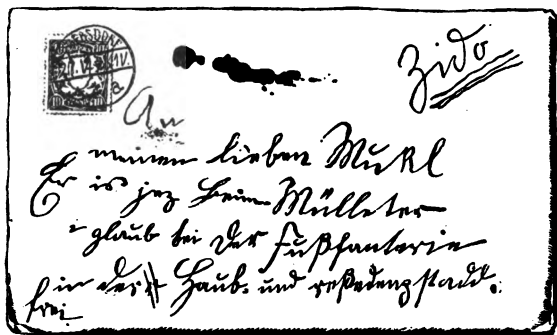 Zido
An
meinen lieben Mukl
Er is jez beim Mülleter
i glaub bei der Fußfanterie
in der Haub- und reßedenzstadt.
frei